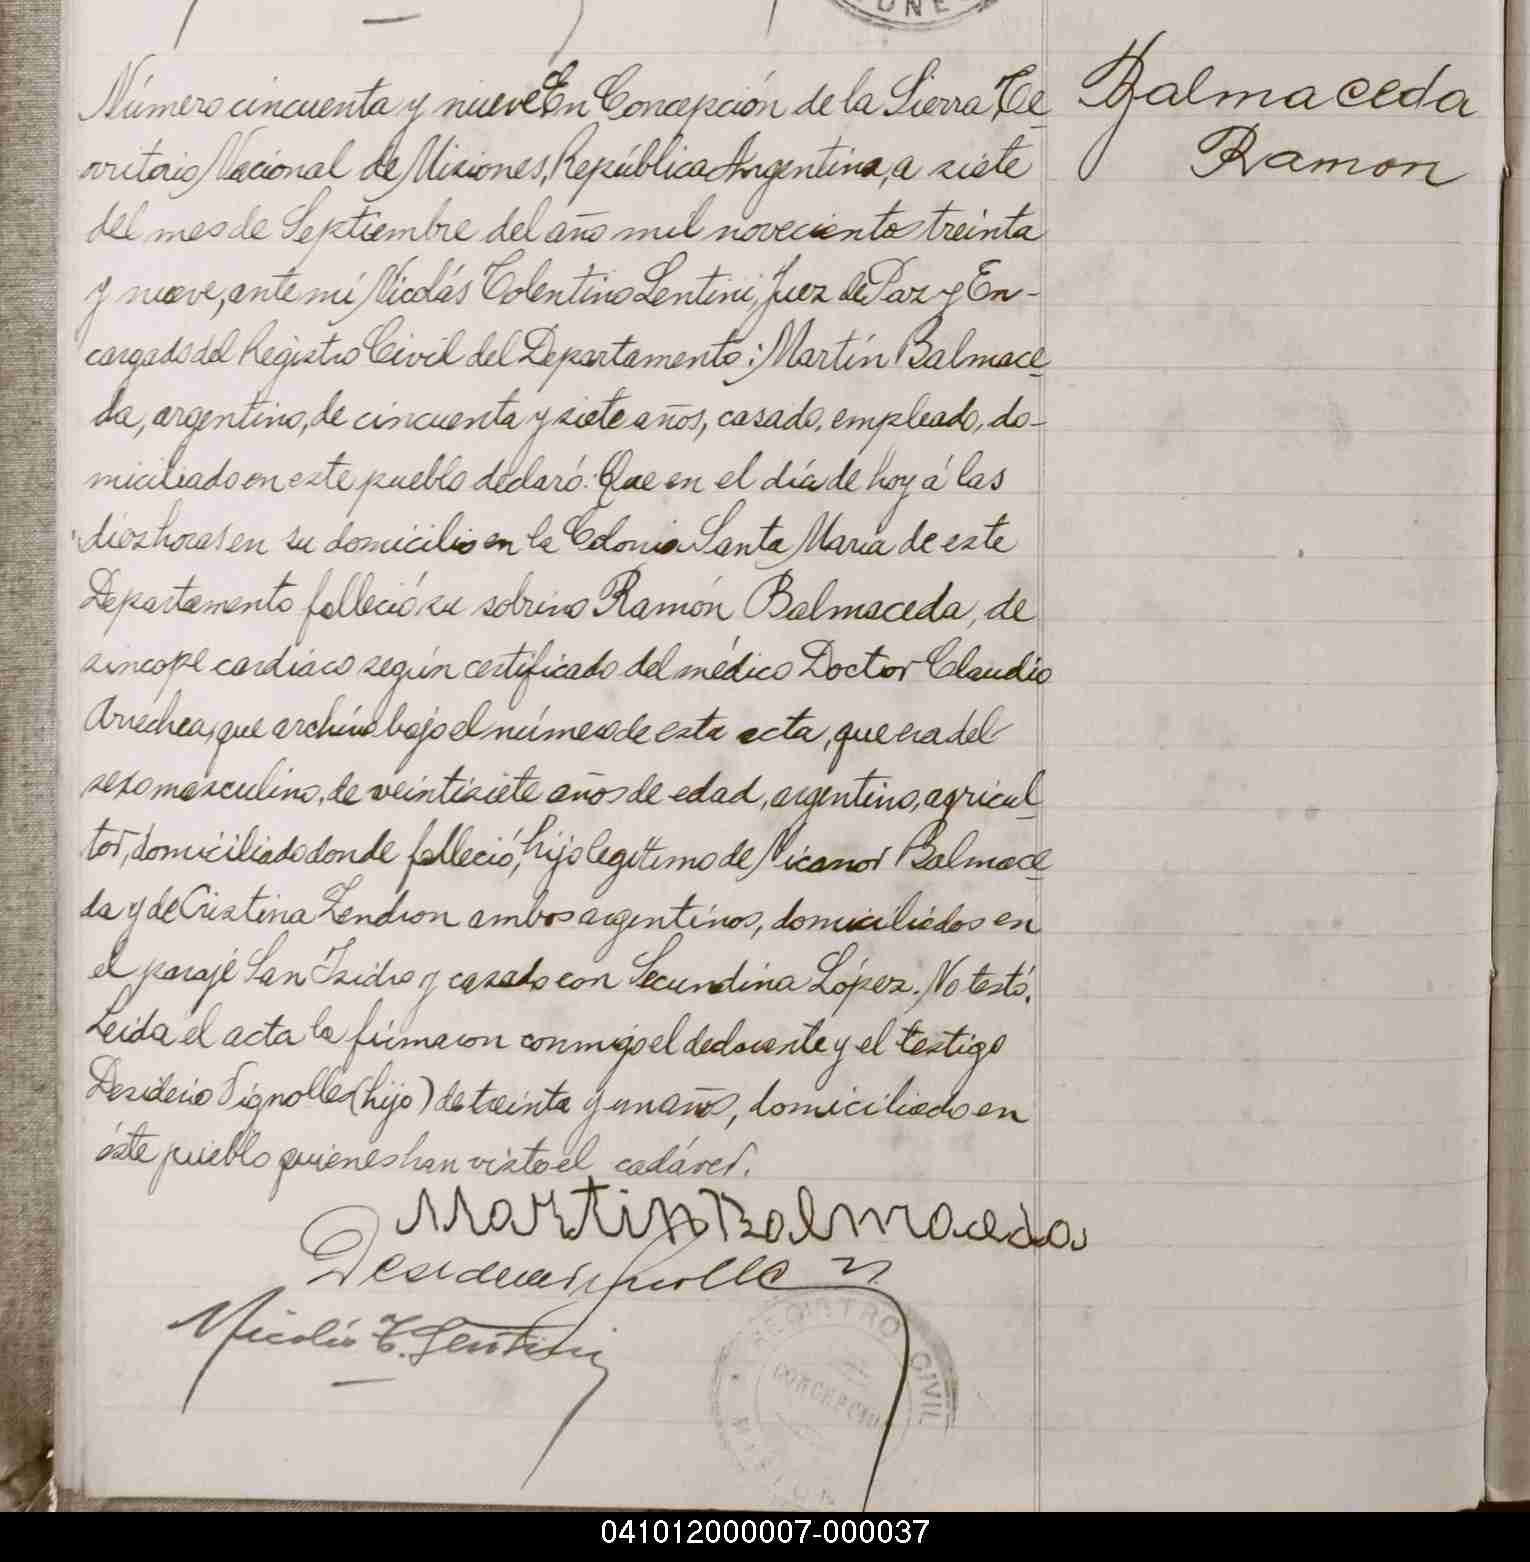 UNE
Número cincuenta y nueve En Concepción de la Sierra Te-
rritorio Nacional de Misiones, República Argentina, a siete
del mes de Septiembre del año mil novecientos treinta
y nueve, ante mí Nicolás Tolentino Lentini, Juez de Paz y En-
cargado del Registro Civil del Departamento: Martín Balmace-
da, argentino, de cincuenta y siete años, casado, empleado, do-
miciliado en este pueblo declaró: Que en el día de hoy á las
diez horas en su domicilio en la Colonia Santa María de este
Departamento falleció su sobrino Ramón Balmaceda, de
síncope cardíaco según certificado del médico Doctor Claudio
Arrechea, que archivo bajo el número de esta acta, que era del
sexo masculino, de veintisiete años de edad, argentino, agricul-
tor, domiciliado donde falleció, hijo legítimo de Nicanor Balmace-
da y de Cristina Lendron ambos argentinos, domiciliados en
el paraje San Isidro y casado con Secundina López. No testó.
Leída el acta la firmaron conmigo el declarante y el testigo
Desiderio Vignolles (hijo) de treinta y un años, domiciliado en
éste pueblo quienes han visto el cadáver.
Martin Balmaceda
Nicolás T. Lentini
REGISTRO CIVIL
CONCEPCION
Balmaceda
Ramon
041012000007-000037